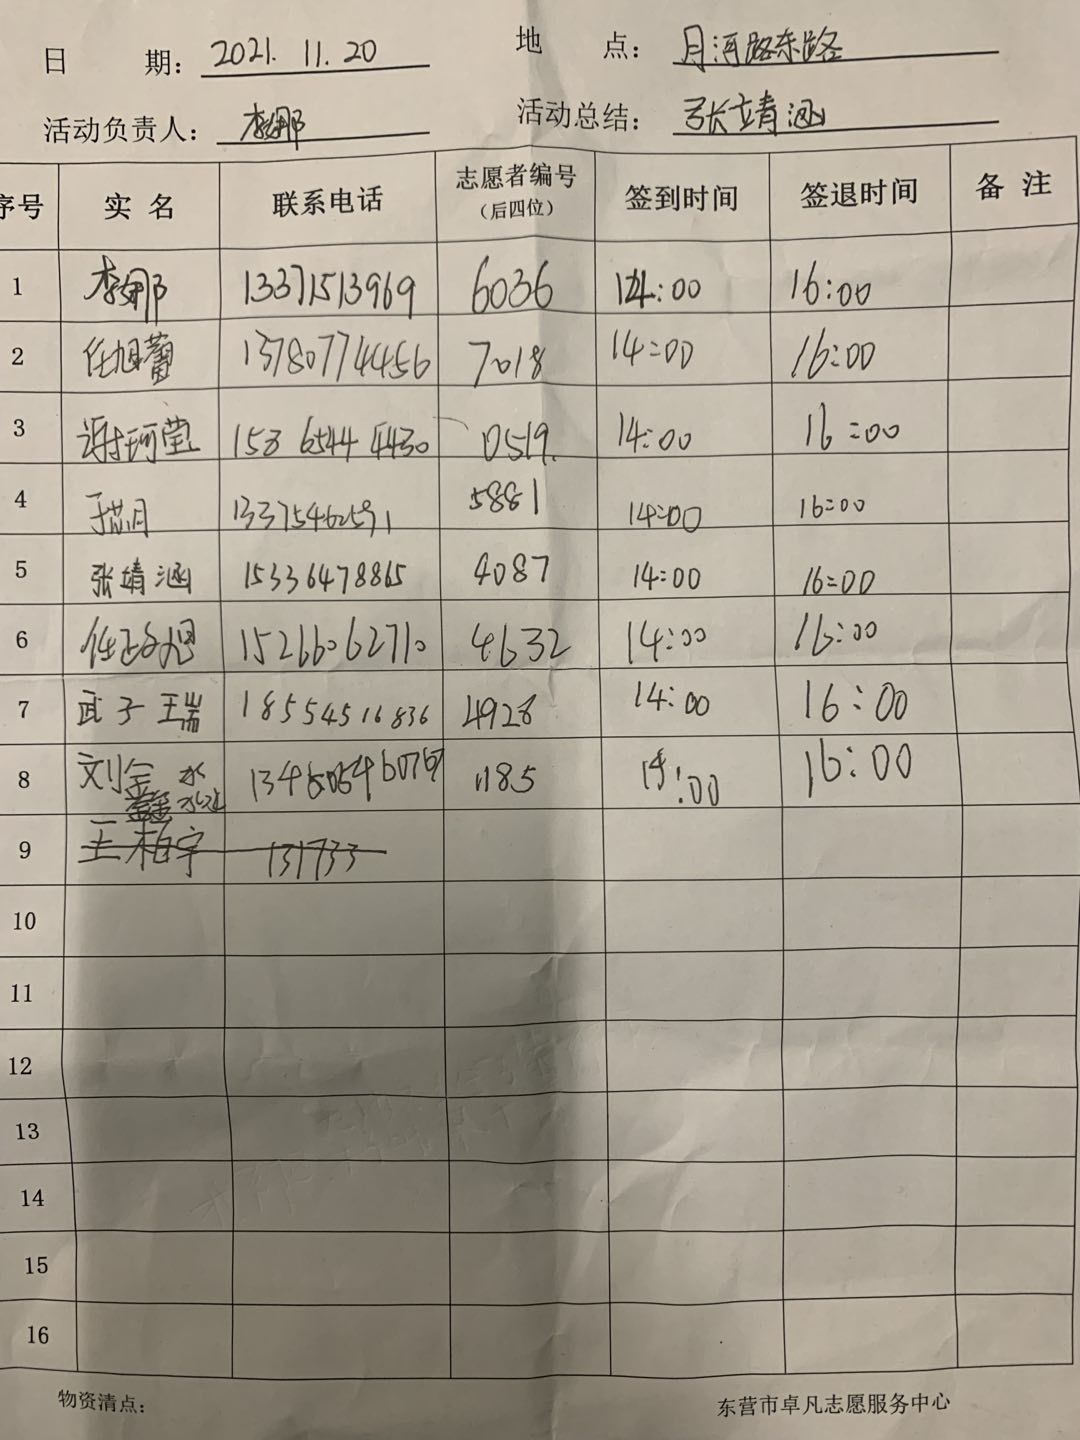 日 期: 2021.11.20 地 点: 月河路东路
活动负责人: 李娜 活动总结: 张靖涵
序号 实名 联系电话 志愿者编号(后四位) 签到时间 签退时间 备注
1 李娜 13371513969 6036 14:00 16:00
2 任旭蕾 13780774456 7018 14:00 16:00
3 谢珂莹 153 6544 4430 0519. 14:00 16:00
4 13375462591 5881 14:00 16:00
5 张靖涵 15336478865 4087 14:00 16:00
6 15266062710 4632 14:00 16:00
7 武子瑞 18554516836 4928 14:00 16:00
8 刘金 1185 14:00 16:00
9 王柏宇 131733
10
11
12
13
14
15
16
物资清点: 东营市卓凡志愿服务中心